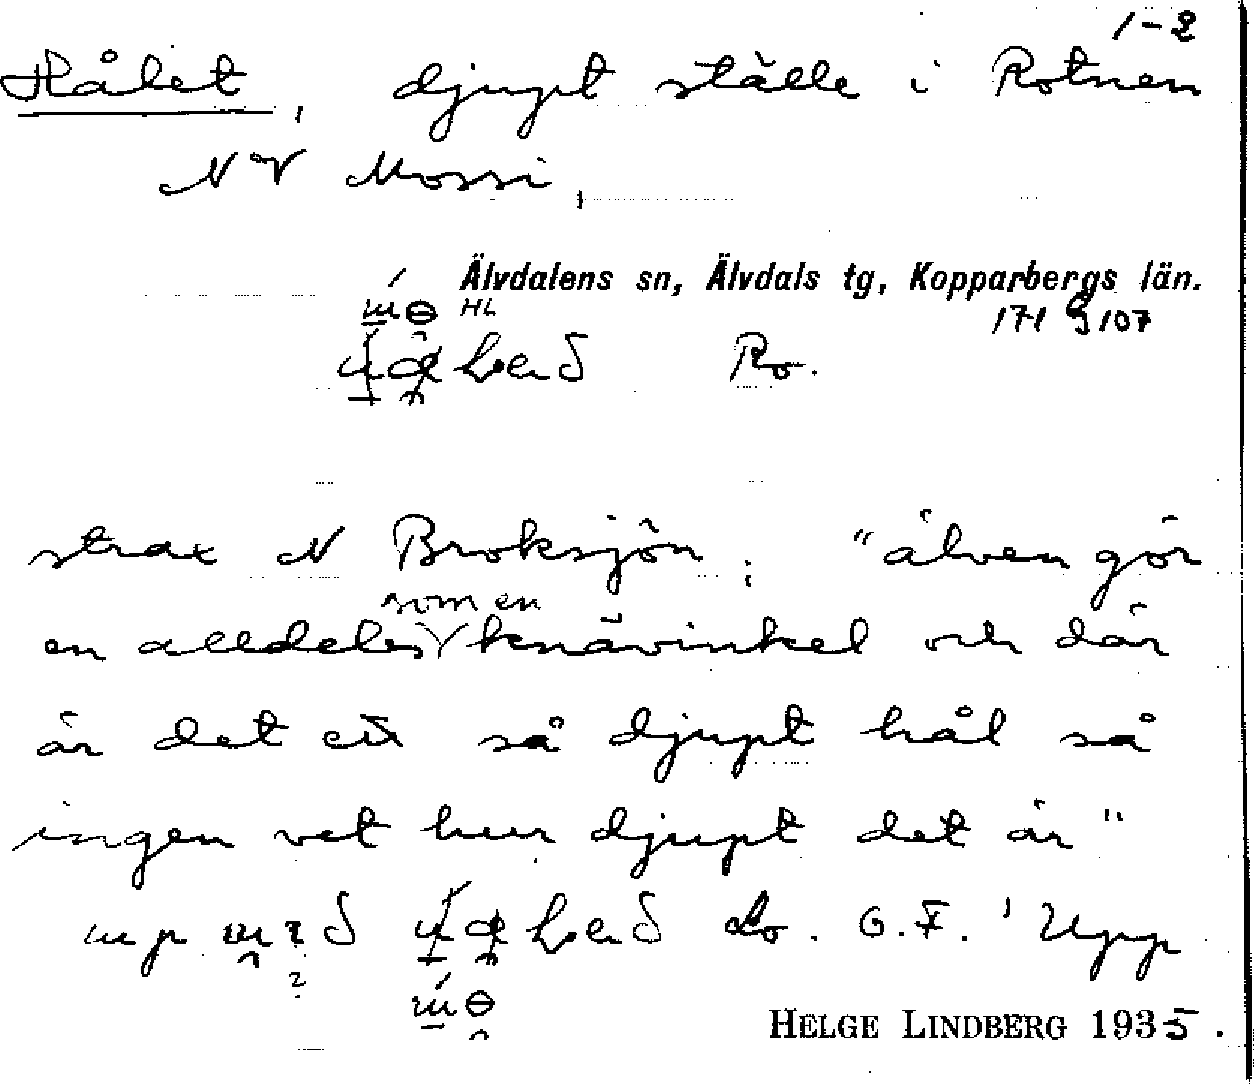 1-2
Hålet, djupt ställe i Rotnen
NV Mossi,
Älvdalens sn, Älvdals tg, Kopparbergs län.
HL 171 G 107
Ro.
strax N Broksjön; "älven gör
en alldeles som en knävinkel och där
är det ett så djupt hål så
ingen vet hur djupt det är"
Lo. G.F. 'Upp
HELGE LINDBERG 1935.